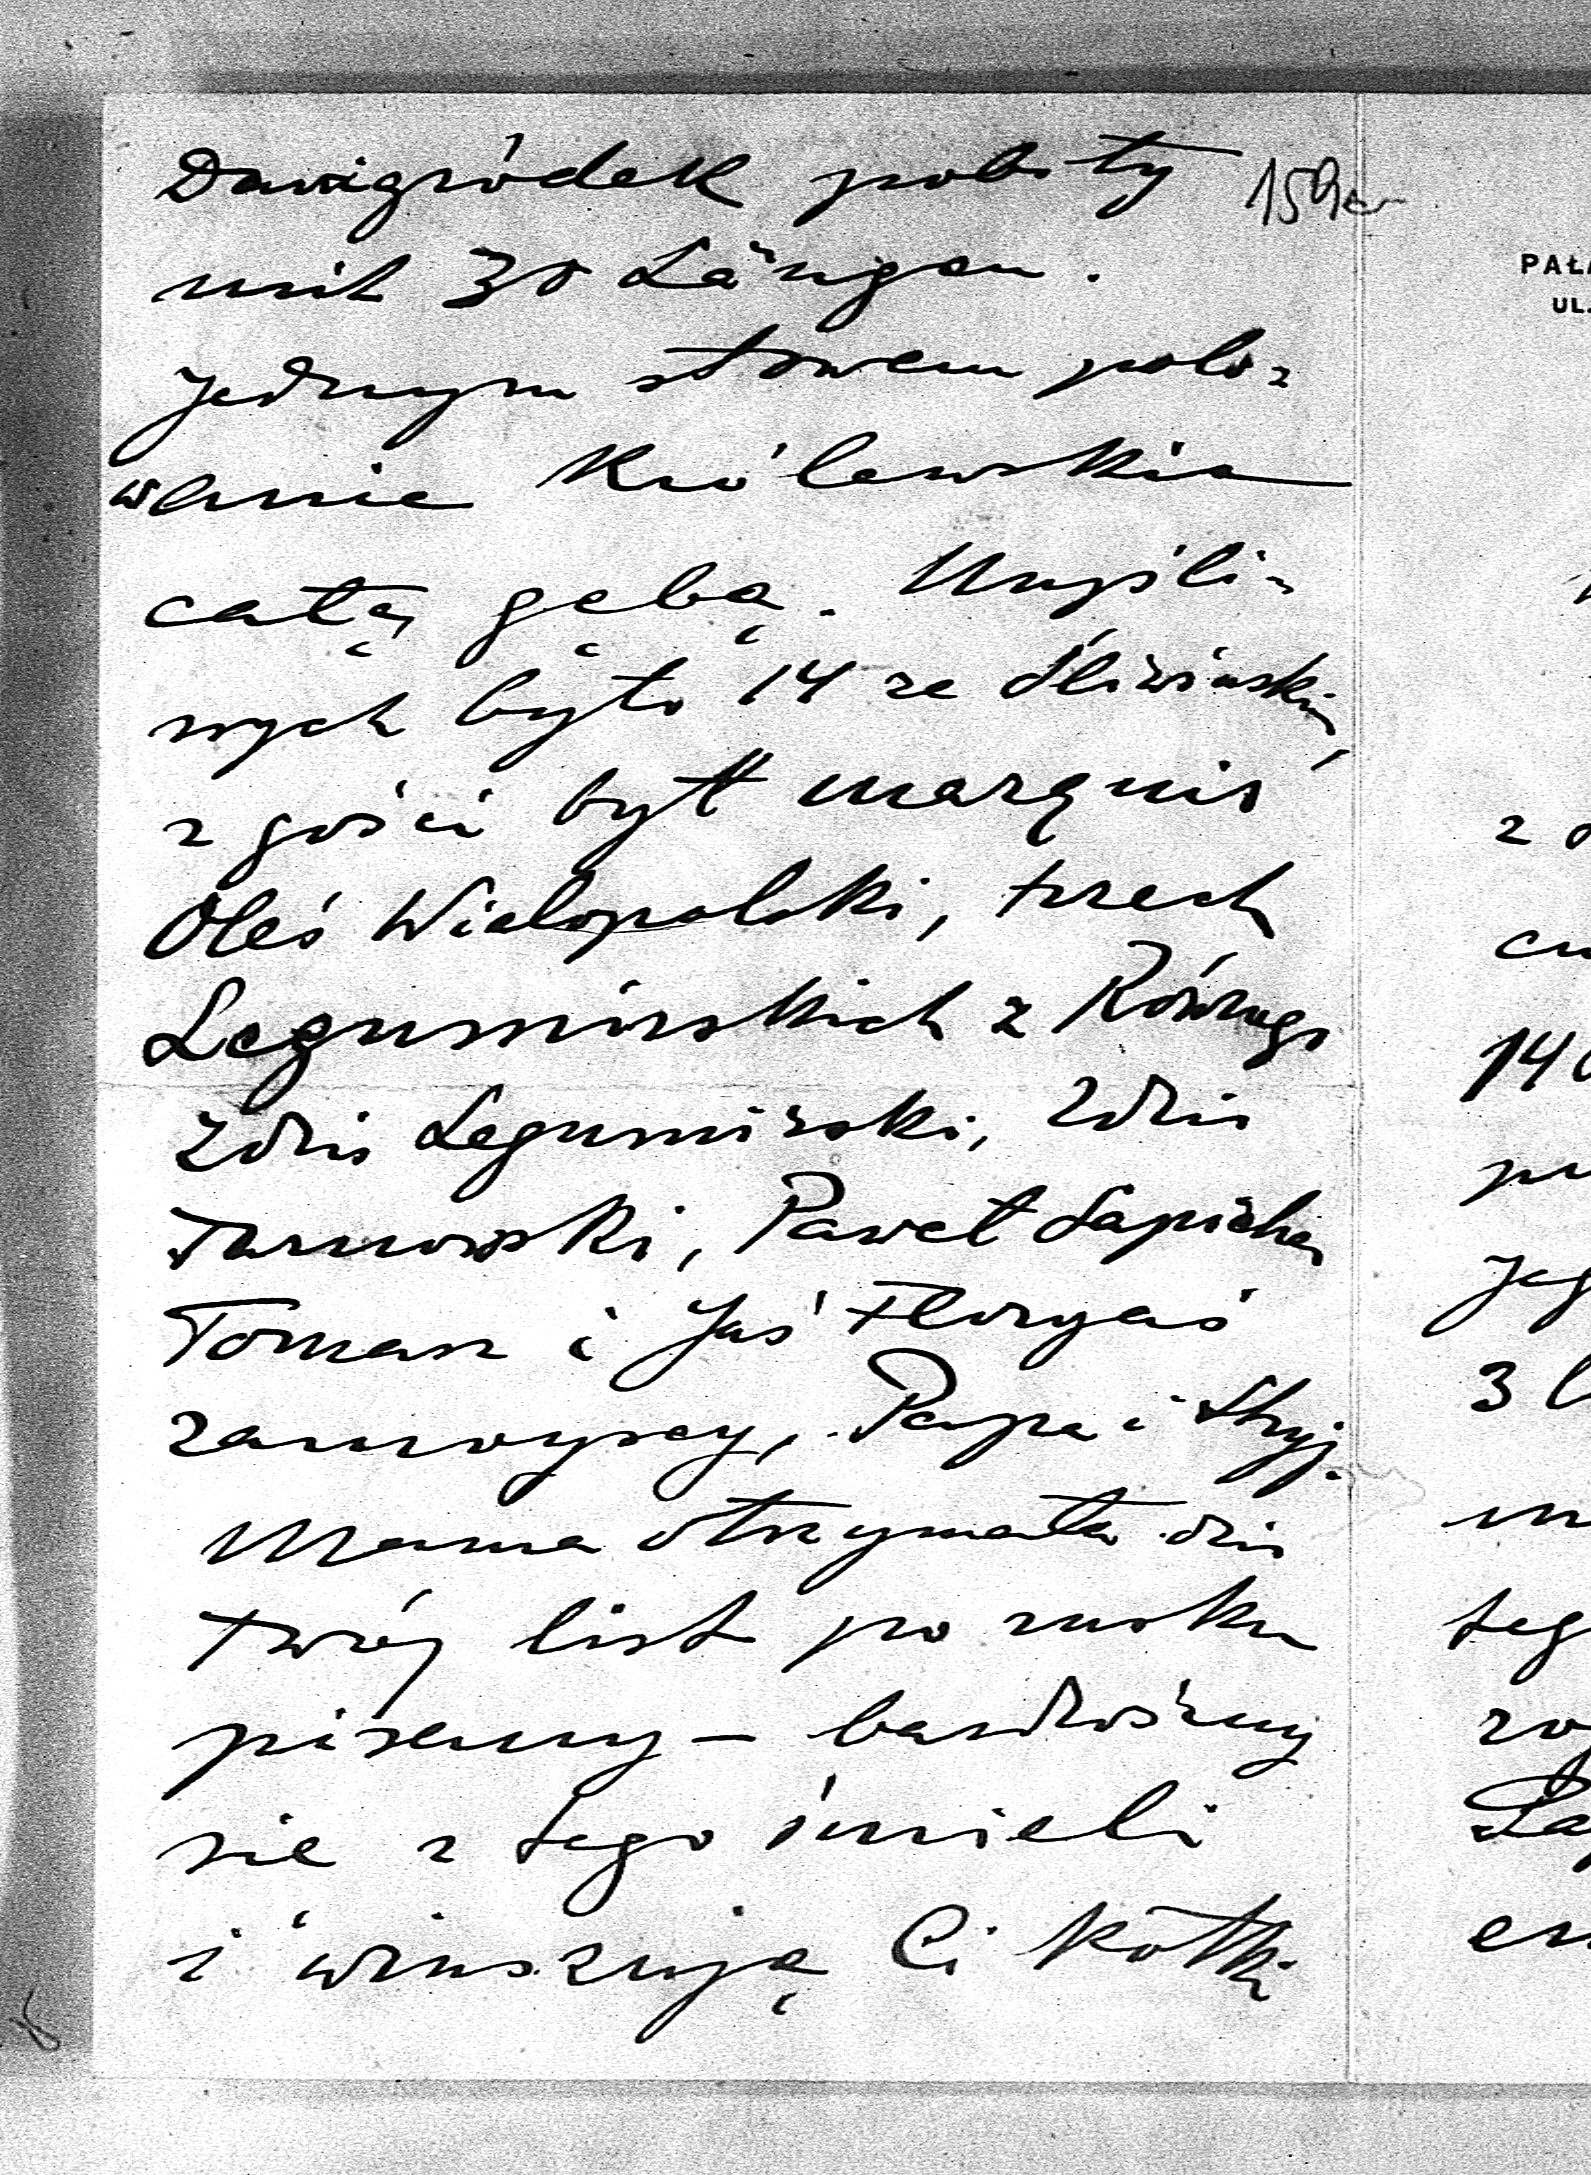 Dawigródek pobity 159
mit 30 Längen.
Jednym słowem polo-
wanie Królewskie
całą gębą. Myśli-
wych było 14 ze Śliwińskim,
z gości był marquis
Oleś Wielopolski, trzech
Legumirskich z Równego
Zdzis Legumirski, Zdzis
Tarnowski, Paweł Sapieha,
Tomasz i Jaś Floryaś
Zamoyscy, Papa i Stryj.
Mama otrzymała dziś
twój list po rusku
pisany – bardzośmy
sie z tego śmieli
i winszują Ci Kotki
PAŁ
UL.
z
cu
14
pr
jeg
3
m
teg
en